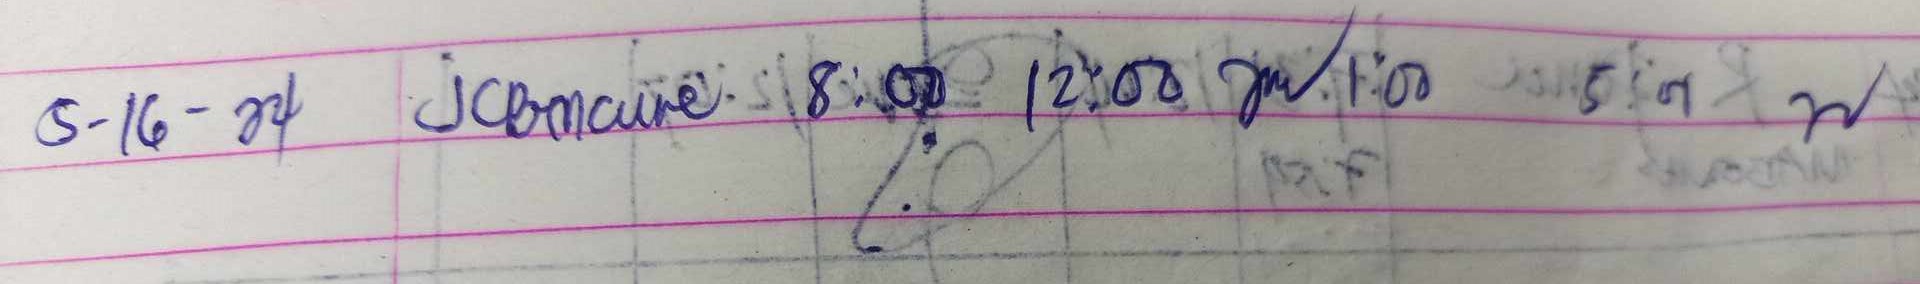 5-16-24 JCBmaure 8:00 12:00 1:00 5:01